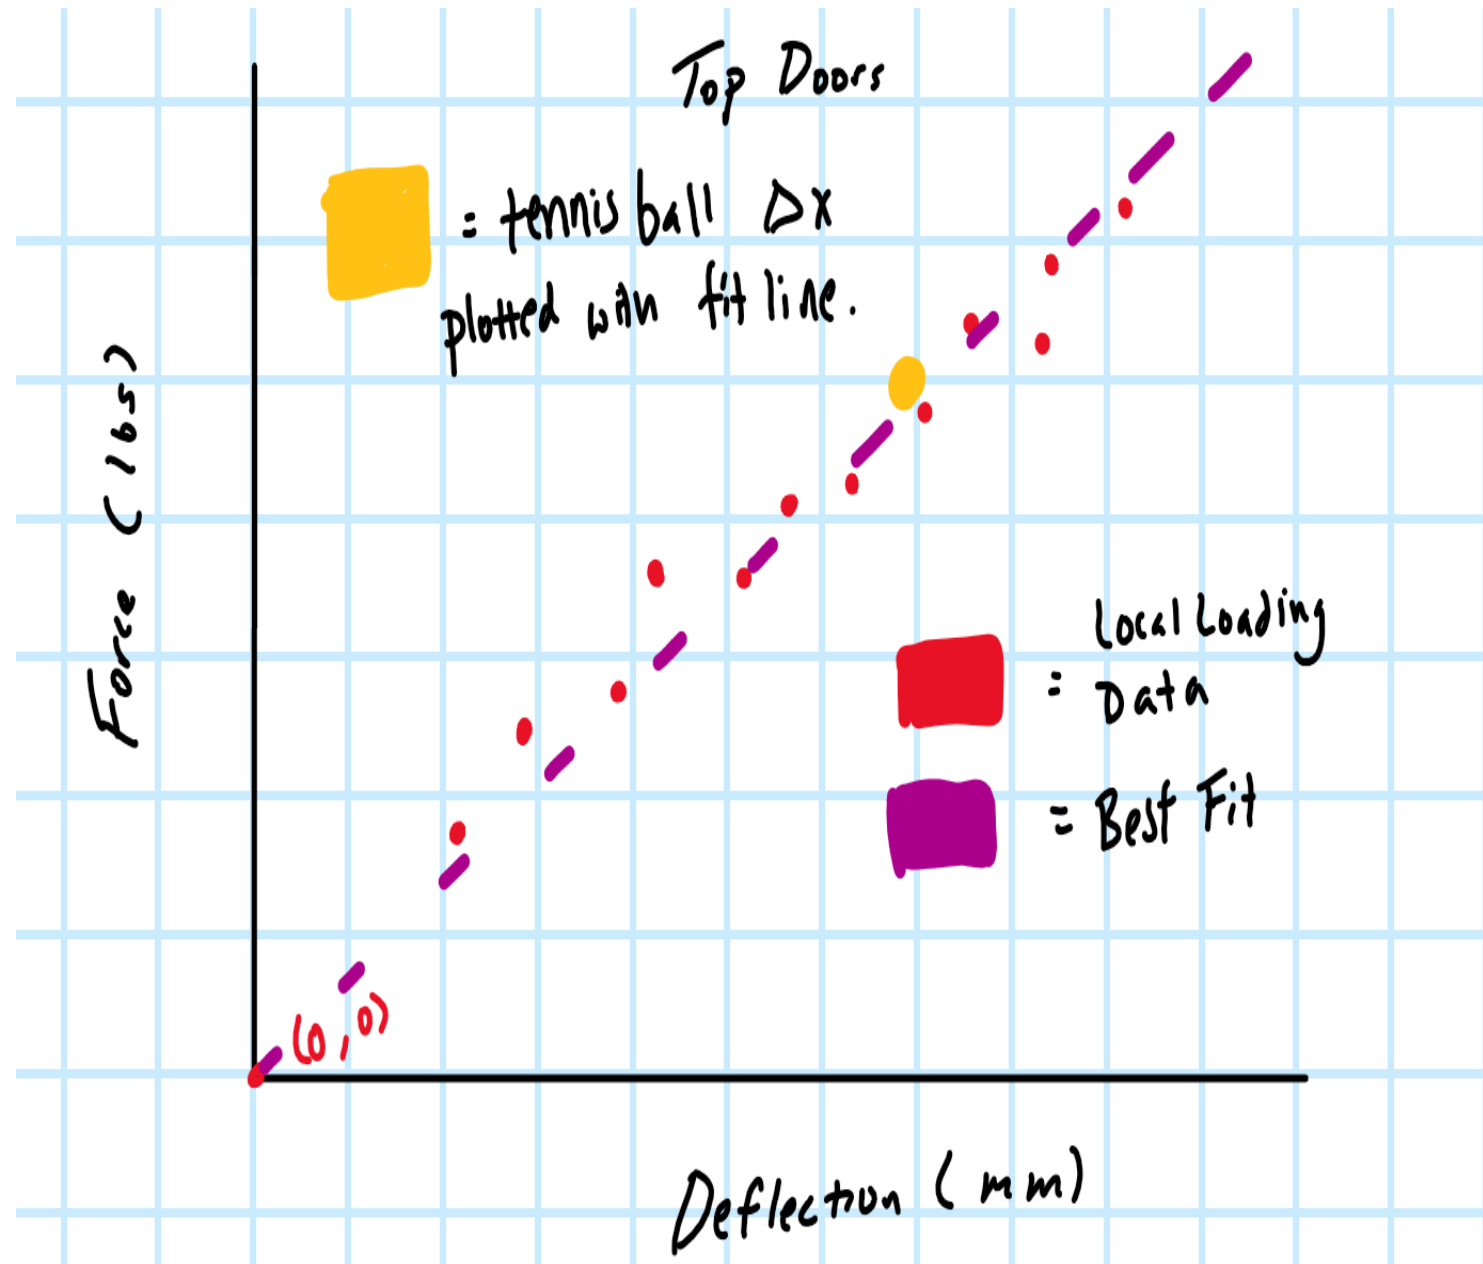 Top Doors
= tennis ball Δx
plotted with fit line.
Force (lbs)
= Local Loading
Data
= Best Fit
(0,0)
Deflection (mm)